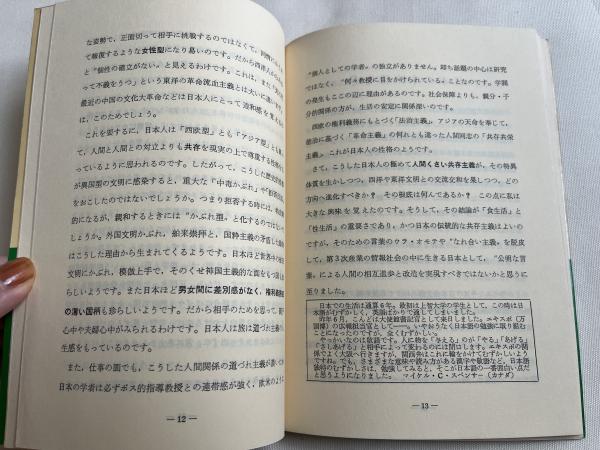 な姿勢で、正面切って相手に挑戦するのではなくて、
て報復するような女性型になり易いのです。だから西洋人か
と〝個性の確立がない〟と見えるわけです。これは、また
って不義をうつ」という東洋の革命流血主義とは大いに違い
最近の中国の文化大革命などは日本人にとって違和感を覚える
は、このためでしょう。
これを要するに、日本人は「西欧型」とも「アジア型」とも
て、人間と人間との対立よりも共存を現実の上で尊重する性格
っているように思われるのです。したがって、こうした歴史
が異国型の文明に感染すると、重大な『中毒かぶれ』や
をおこしたのではないでしょうか。つまり拒否する時には、
的になるが、親和するときには〝かぶれ型〟と化するのではない
しょうか。外国文明かぶれ、舶来崇拝と、国粋主義の矛盾した
はこうした理由から生まれてくるようです。日本ほど世界中の
文明にかぶれ、模倣上手で、そのくせ神国主義的な面をもつ国
ようです。また日本ほど男女間に差別感がなく、権利
の薄い国柄も珍らしいようです。だから相手のためを思って、
心中や夫婦心中がみられるわけです。日本人は旅は道づれ主義の
生感をもっているのです。
また、仕事の面でも、こうした人間関係の道づれ主義が
日本の学者は必ずボス的指導教授との連帯感が強く、欧米のように
— 12 —
〝個人としての学者〟の独立がありません。即ち話題の中心は研究
ではなく、〝何々教授に目をかけられている〟ことなのです。学閥
の発生もここの辺に理由があるのです。社会保障よりも、親分・子
分的関係の方が、生活の安定に関係深いのです。
西欧の権利義務にもとづく『法治主義』、アジアの天命を奉じて、
徳治に基づく『革命主義』の何れとも違った人間同志の『共存共栄
主義』、これが日本人の性格のようです。
さて、こうした日本人の極めて人間くさい共存主義が、その特異
体質を生かしつつ、四洋や東洋文明との交流交和を果しつつ、どの
方向へ進化すべきか? その根底は何んであるか? この点に私は
大きな興味を覚えたのです。そうして、その結論が「食生活」と
「性生活」の重要さであり、かつ日本の伝統的な共存主義はよいの
ですが、そのための言葉のウラ・オモテや〝なれ合い主義〟を脱皮
して、第3次産業の情報社会の中に生きる日本として、〝公明な言
葉〟による人間の相互進歩と改造を実現すべきではないかと思うに
至りました。
日本での生活は通算6年。最初は上智大学の学生として、この時は日
本語がわずかしく、英語ばかりで通してしまいました。
昨年6月、こんどは大使館書記官として来日しました。エキスポ(万
国博)の広報担当官として——。いやおうなく日本語の勉強に取り組む
ことになったのですが、全くむずかしい。
やっかいなのは敬語です。人に物を「与える」のが「やる」「あげる」
「さしあげる」と相手によって変わるのには閉口します。エキスポの関
係でよく大阪へ行きますが、関西弁はこれに輪をかけてむずかしいよう
ですね。でも、さまざまな意味や読み方がある漢字や敬語など、日本語
独特のむずかしさは、勉強してみると、そこが日本語の一番面白い点だ
と思うようになりました。 マイケル・C・スペンサー(カナダ)
— 13 —